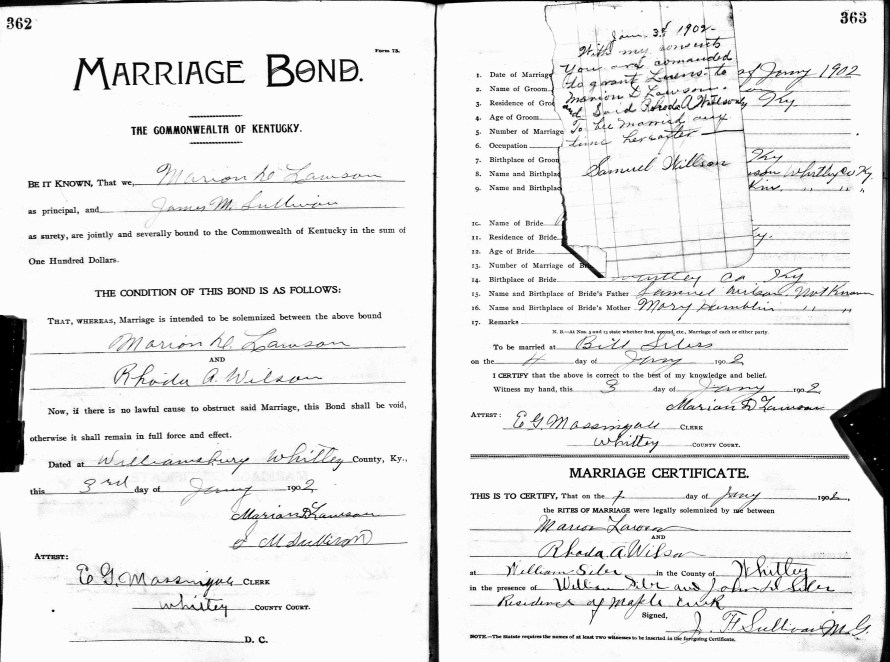 362
Form 73.
MARRIAGE BOND.
THE COMMONWEALTH OF KENTUCKY.
BE IT KNOWN, That we, Marion D Lawson
as principal, and James M. Sullivan
as surety, are jointly and severally bound to the Commonwealth of Kentucky in the sum of
One Hundred Dollars.
THE CONDITION OF THIS BOND IS AS FOLLOWS:
THAT, WHEREAS, Marriage is intended to be solemnized between the above bound
Marion D Lawson
AND
Rhoda A. Wilson
Now, if there is no lawful cause to obstruct said Marriage, this Bond shall be void,
otherwise it shall remain in full force and effect.
Dated at Williamsburg Whitley County, Ky.,
this 3rd day of Jany 1902
Marian D Lawson
J M Sullivan
ATTEST:
E G. Massingale CLERK
Whitley COUNTY COURT.
D. C.
363
Jan. 3d 1902.
With my consent
You are comanded
to grant Lisens to
Marion D Lawson.
and Said Rhoda A Willson
To bee married any
time hereafter
Samuel Willson
1. Date of Marriage of Jany 1902
2. Name of Groom
3. Residence of Groo Ky
4. Age of Groom
5. Number of Marriage
6. Occupation
7. Birthplace of Groom Ky
8. Name and Birthplac Whitley Co Ky.
9. Name and Birthplac " "
10. Name of Bride
11. Residence of Bride Ky.
12. Age of Bride
13. Number of Marriage of B
14. Birthplace of Bride Whitley Co Ky
15. Name and Birthplace of Bride's Father Samuel Wilson Not Known
16. Name and Birthplace of Bride's Mother Mary Hamblin " "
17. Remarks
N. B.—At Nos. 5 and 13 state whether first, second, etc., Marriage of each or either party.
To be married at Bill Silers
on the 4 day of Jany 1902
I CERTIFY that the above is correct to the best of my knowledge and belief.
Witness my hand, this 3 day of Jany 1902
Marian D Lawson
ATTEST:
E G. Massingale CLERK
Whitley COUNTY COURT.
MARRIAGE CERTIFICATE.
THIS IS TO CERTIFY, That on the 4 day of Jany 1902,
the RITES OF MARRIAGE were legally solemnized by me between
Marion Lawson
AND
Rhoda A Wilson
at William Siler in the County of Whitley
in the presence of William Siler and John D Siler
Residence of Maple Creek
Signed, J. F Sullivan M.G.
NOTE.—The Statute requires the names of at least two witnesses to be inserted in the foregoing Certificate.